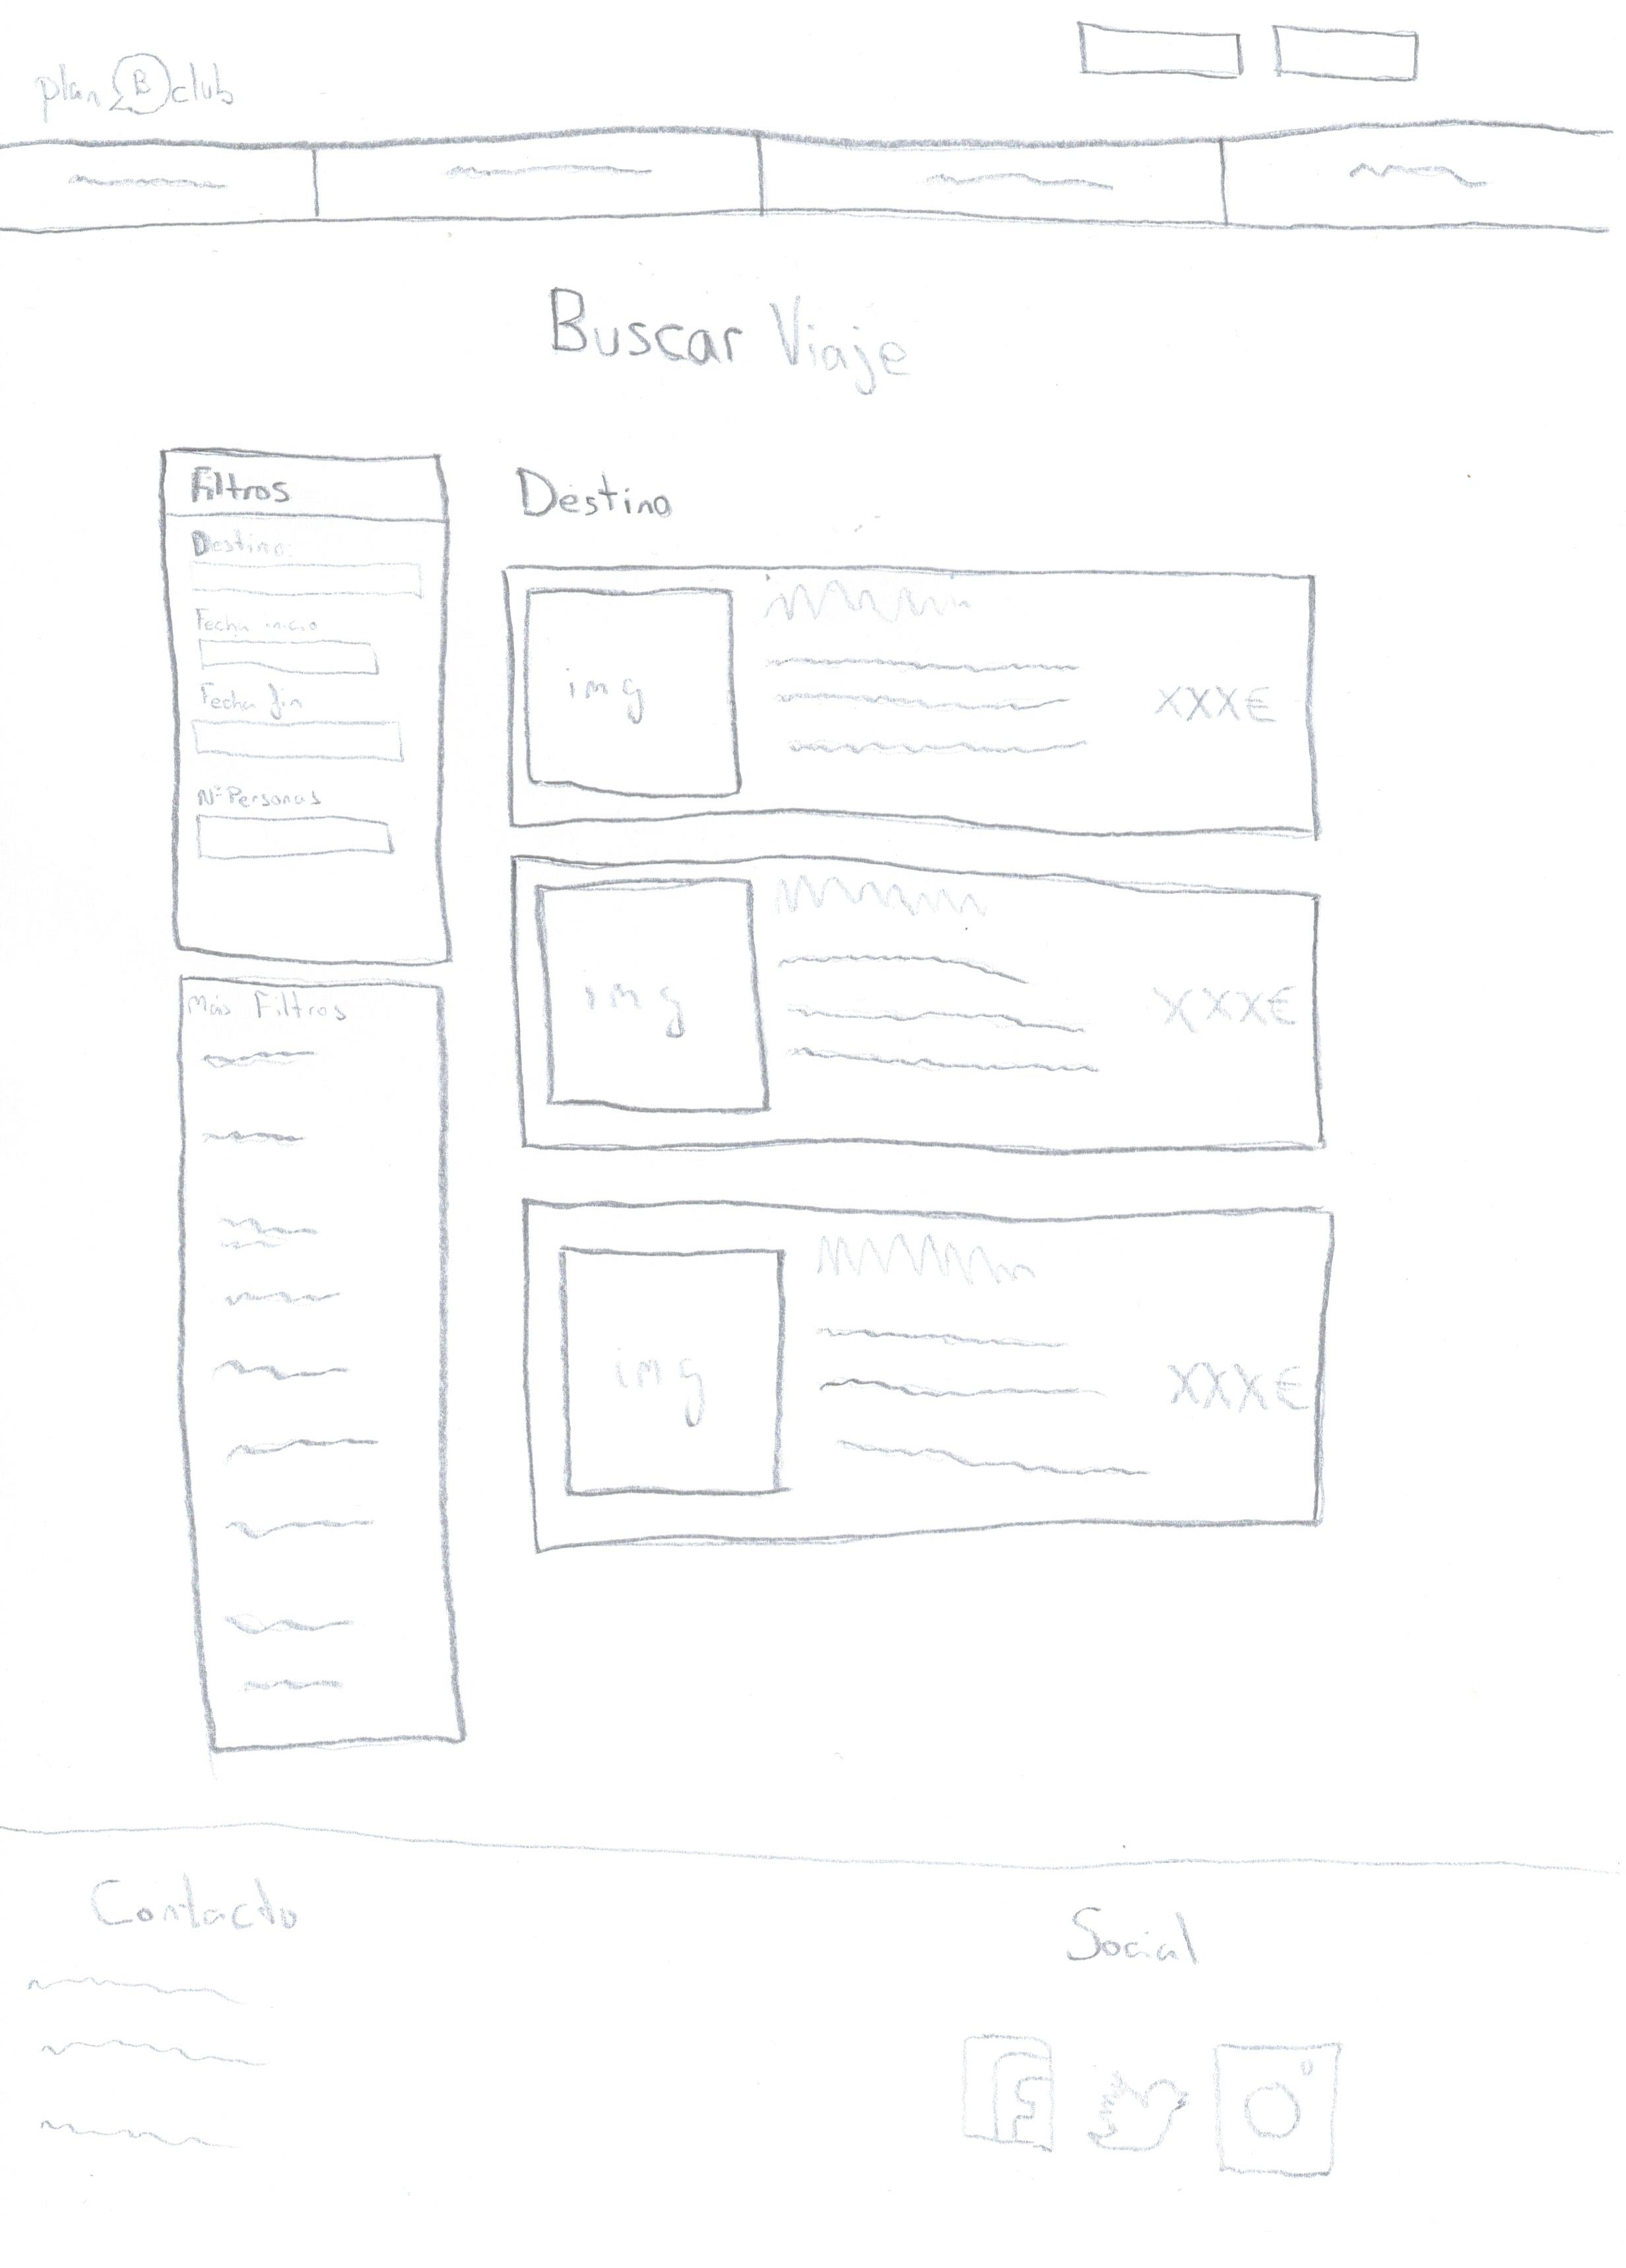 plan B club
Buscar Viaje
Filtros
Destino:
Fecha inicio
Fecha fin
Nº Personas
Más Filtros
Destino
img
XXX€
img
XXX€
img
XXX€
Contacto
Social